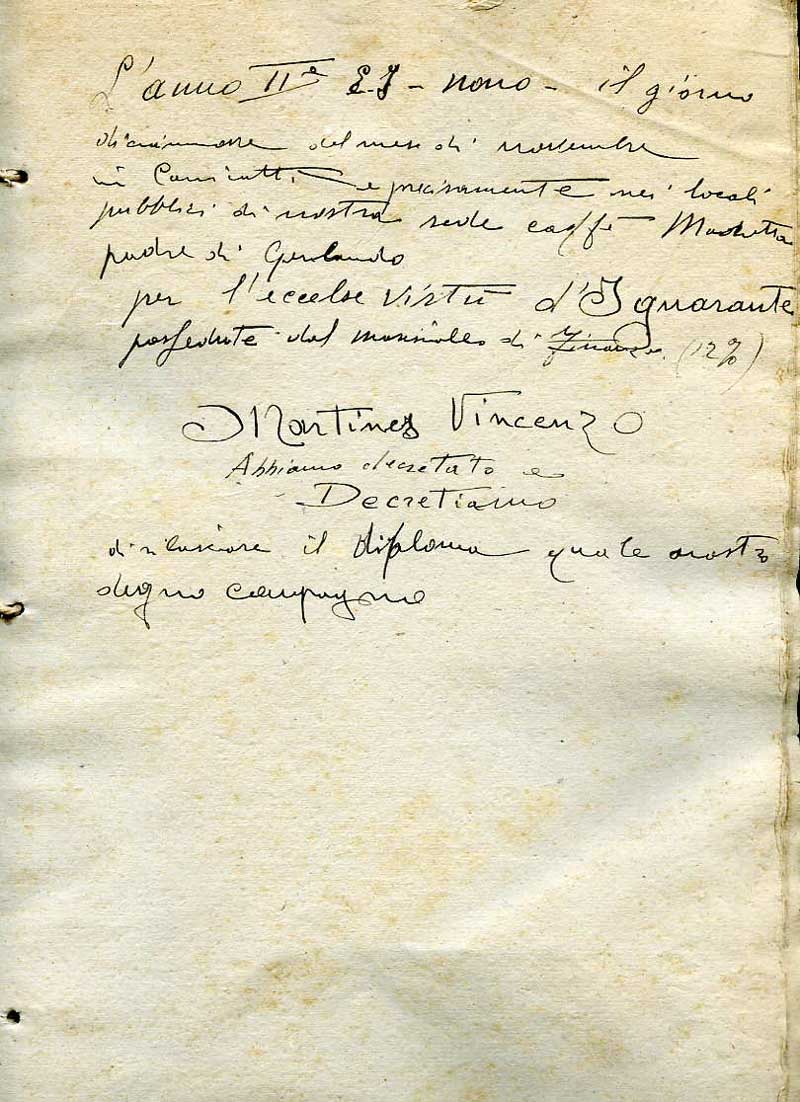 L'anno IIº E.I - nono - il giorno
diciannove del mese di novembre
in Canicattì e precisamente nei locali
pubblici di nostra sede caffè
padre di Gerlando
per l'eccelse virtù d'Ignorante
possedute dal di Finanza (12%)
Martinez Vincenzo
Abbiamo decretato e
Decretiamo
di rilasciare il diploma quale nostro
degno compagno